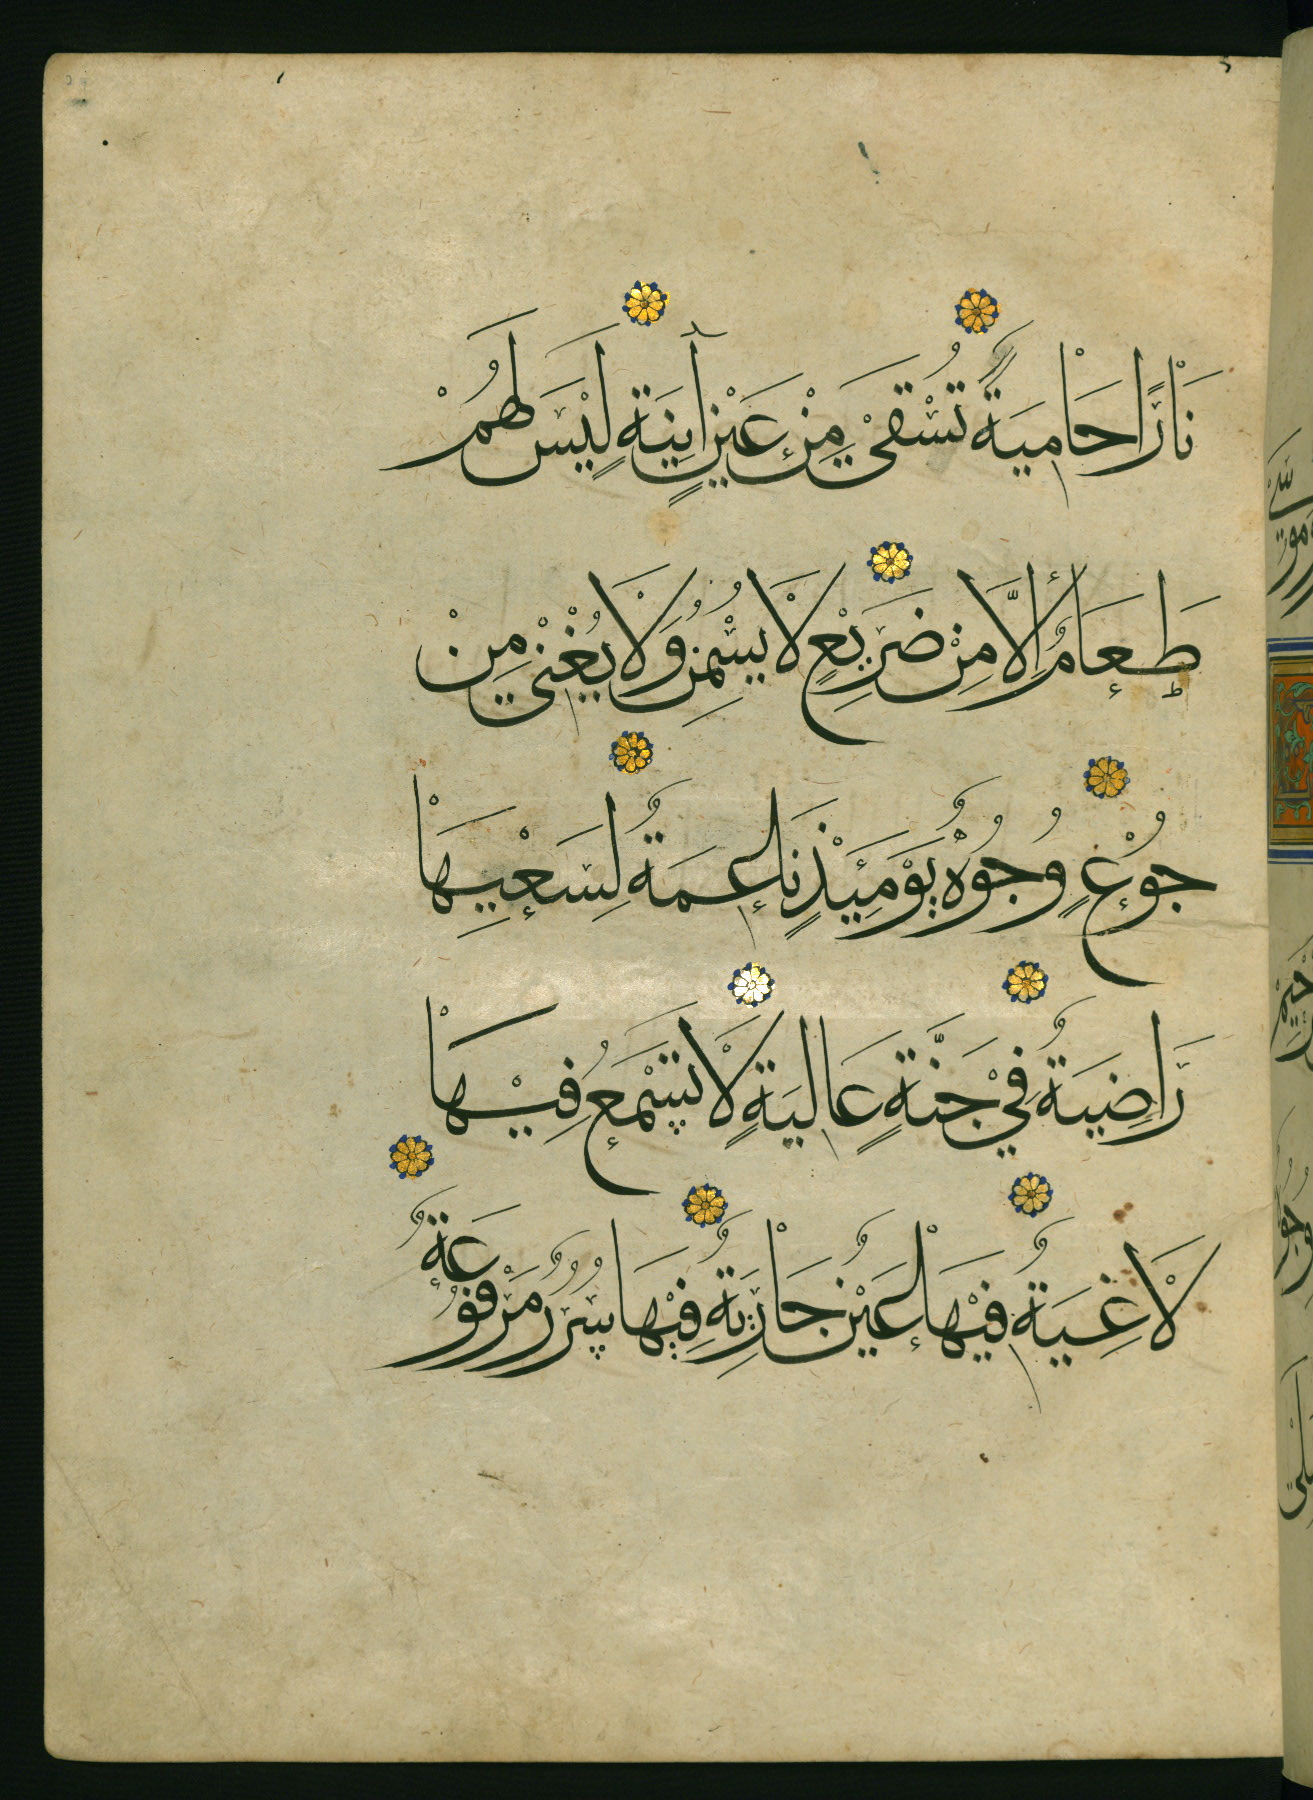 نَارًا حَامِيَةً تُسْقَىٰ مِنْ عَيْنٍ آنِيَةٍ لَيْسَ لَهُمْ
طَعَامٌ إِلَّا مِنْ ضَرِيْعٍ لَا يُسْمِنُ وَلَا يُغْنِيْ مِنْ
جُوْعٍ وُجُوْهٌ يَوْمَئِذٍ نَاعِمَةٌ لِسَعْيِهَا
رَاضِيَةٌ فِيْ جَنَّةٍ عَالِيَةٍ لَا يُسْمَعُ فِيْهَا
لَاغِيَةٌ فِيْهَا عَيْنٌ جَارِيَةٌ فِيْهَا سُرُرٌ مَرْفُوْعَةٌ